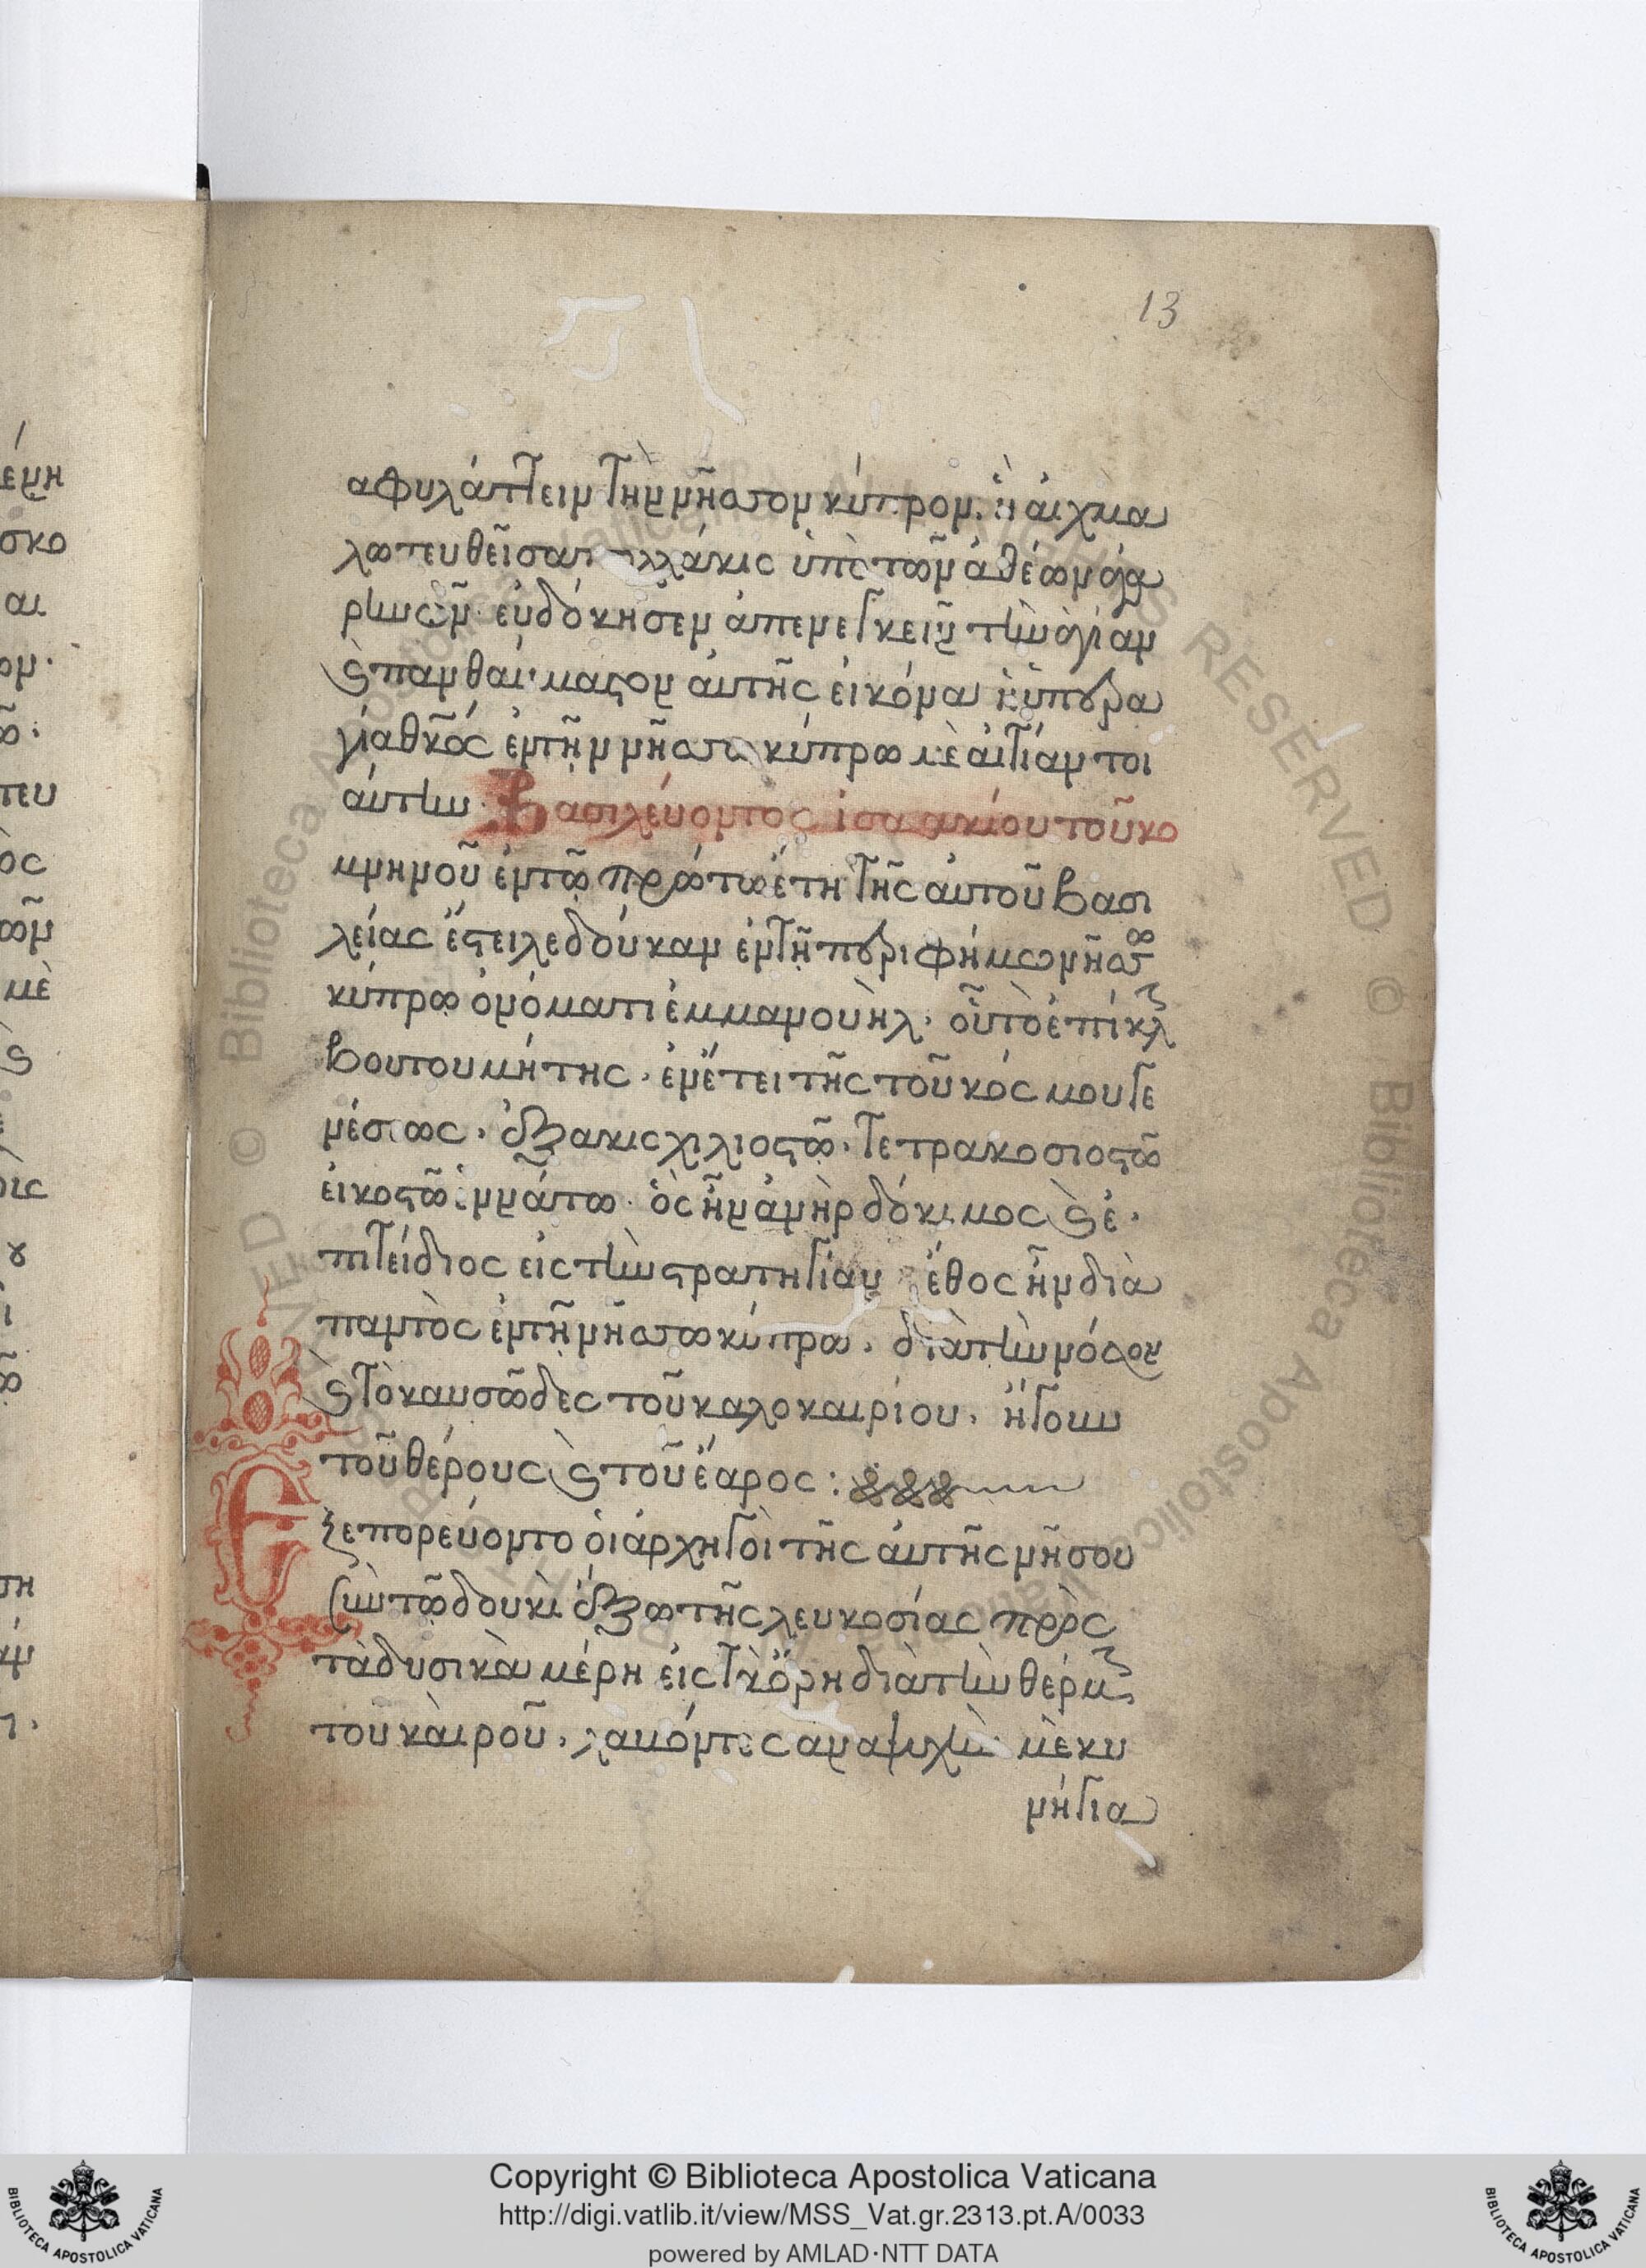 13
αφυλάττειν τὴν νῆσσον κύπρον. ἡ αἰχμα
λωτευθεῖσα πολλάκις ὑπὸ τῶν ἀθέων ἀγα
ρινῶν. εὐδόκησεν ἀπενεγκεῖν τὴν ἁγίαν
ϗ πανθαύμαστον αὐτῆς εἰκόνα ἡ ὑπερα
γία θκος ἐν τῆν νῆσσω κύπρω μὲ αἰτίαν τοι
άυτην. Βασιλεύοντος ἰσαακίου τοῦ κο
μνηνοῦ ἐν τῶ πρώτω έτη τῆς αὐτοῦ βασι
λείας ἔστειλε δούκαν ἐν τῆ περιφήμω νήσσω
κύπρω ὀνόματι ἐμμανουὴλ. οὗ τὸ ἐπίκλ
βουτουμήτης. ἐν ἔτει τῆς τοῦ κόσμου γε
νέσεως. ἑξακισχιλιοστῶ. τετρακοσιοστῶ
εἰκοστῶ ἐννάτω. ὃς ἦν ἀνὴρ δόκιμος ϗ ἐ.
πιτείδιος εἰς τὴν στρατηγίαν ἔθος ἦν διὰ
παντὸς ἐν τῆ νήσσω κύπρω. διὰ τὴν νόσον
ϗ τὸ καυσῶδες τοῦ καλοκαιρίου. ἤγουν
τοῦ θέρους ϗ τοῦ ἔαρος:
Εξεπορεύοντο ὁι ἀρχηγοὶ τῆς αὐτῆς νήσου
σὺν τῶ δουκὶ ἔξω τῆς λευκοσίας πρὸς
τὰ δυσικὰ μέρη εἰς τὰ ὄρη διὰ τὴν θέρμ
του καιροῦ. λαμόντες αναψυχὴν μὲ κυ
νήγια
Copyright © Biblioteca Apostolica Vaticana
http://digi.vatlib.it/view/MSS_Vat.gr.2313.pt.A/0033
powered by AMLAD·NTT DATA